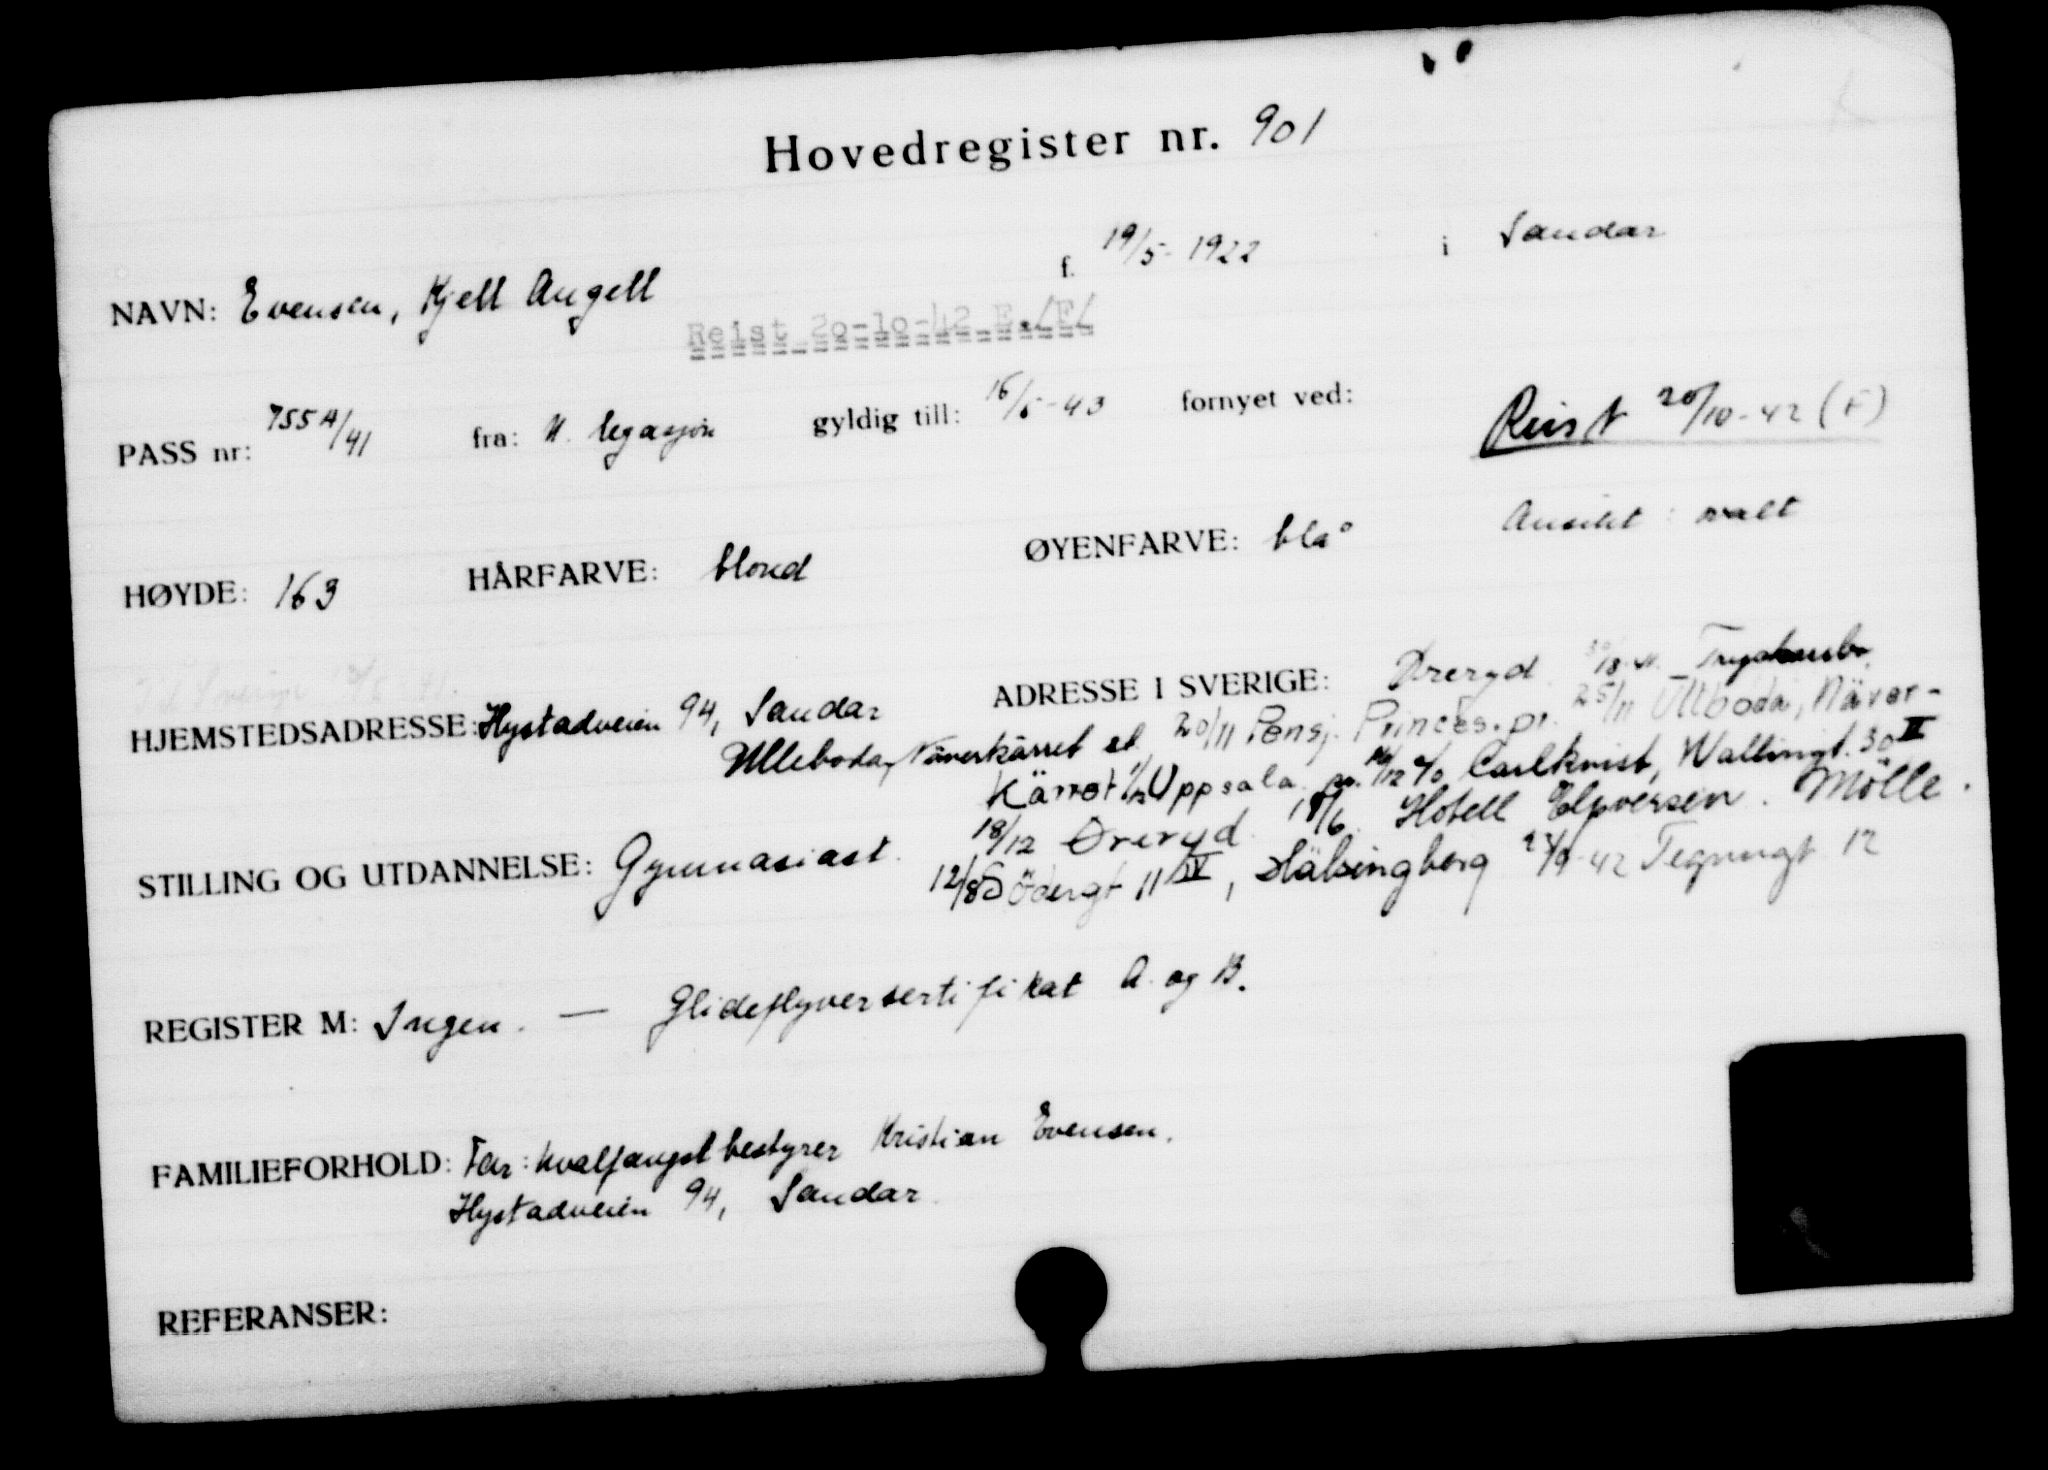 Hovedregister nr. 901
NAVN: Evensen, Kjell Angell f. 19/5-1922 i Sandar
Reist 20-10-42 E./F/
PASS nr: 755A/41 fra: N. legasjon gyldig till: 16/5-43 fornyet ved:
Reist 20/10-42 (F)
HØYDE: 163 HÅRFARVE: blond ØYENFARVE: blå Ansikt: ovalt
Til Sverige
HJEMSTEDSADRESSE: Hystadveien 94, Sandar ADRESSE I SVERIGE: Øreryd
Ulleboda, Näverkärret st. 20/11 Pensj. Princes. pr. 25/11 Ulleboda, Näver-
Kärret Uppsala c/o Carlkvist, Wallingt. 30 II
18/12 Øreryd. 18/6. Hotell Elfversen. Mölle.
STILLING OG UTDANNELSE: Gymnasiast.
12/8 Södergt 11 IV, Hälsingborg 42 Tegnergt 12
REGISTER M: Ingen. — Glideflyversertifikat A. og B.
FAMILIEFORHOLD: Far: hvalfangstbestyrer Kristian Evensen.
Hystadveien 94, Sandar.
REFERANSER: